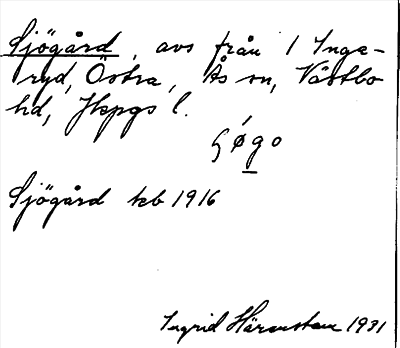 Sjögård, avs från 1 Inga-
ryd, Östra, Ås sn, Västbo
hd, Jkpgs l.
gøgo
Sjögård kcb 1916
Ingrid Härenstam 1931